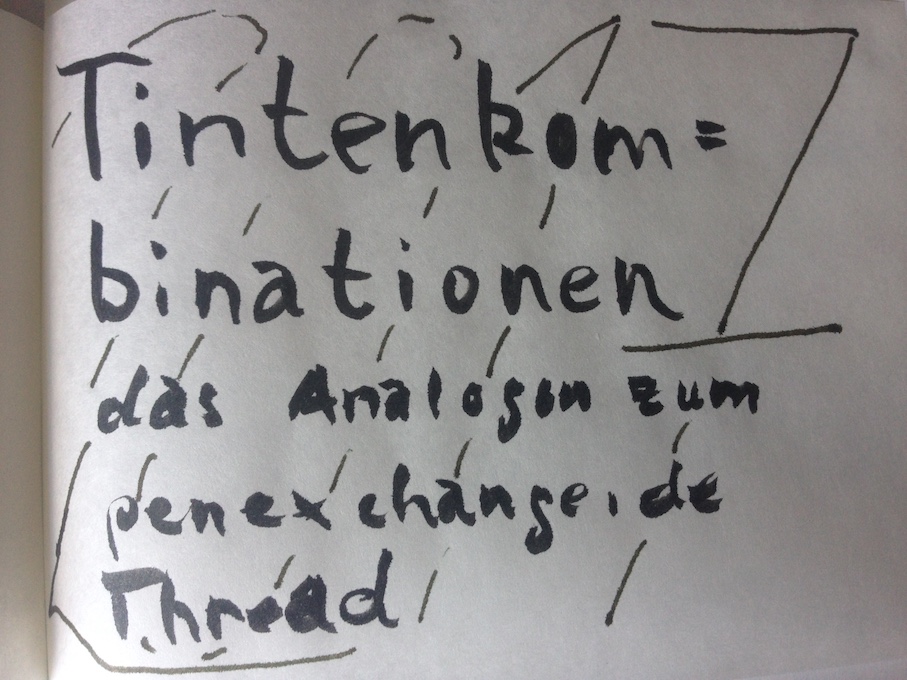 Tintenkom=
binationen
das Analogon zum
penexchange.de
Thread